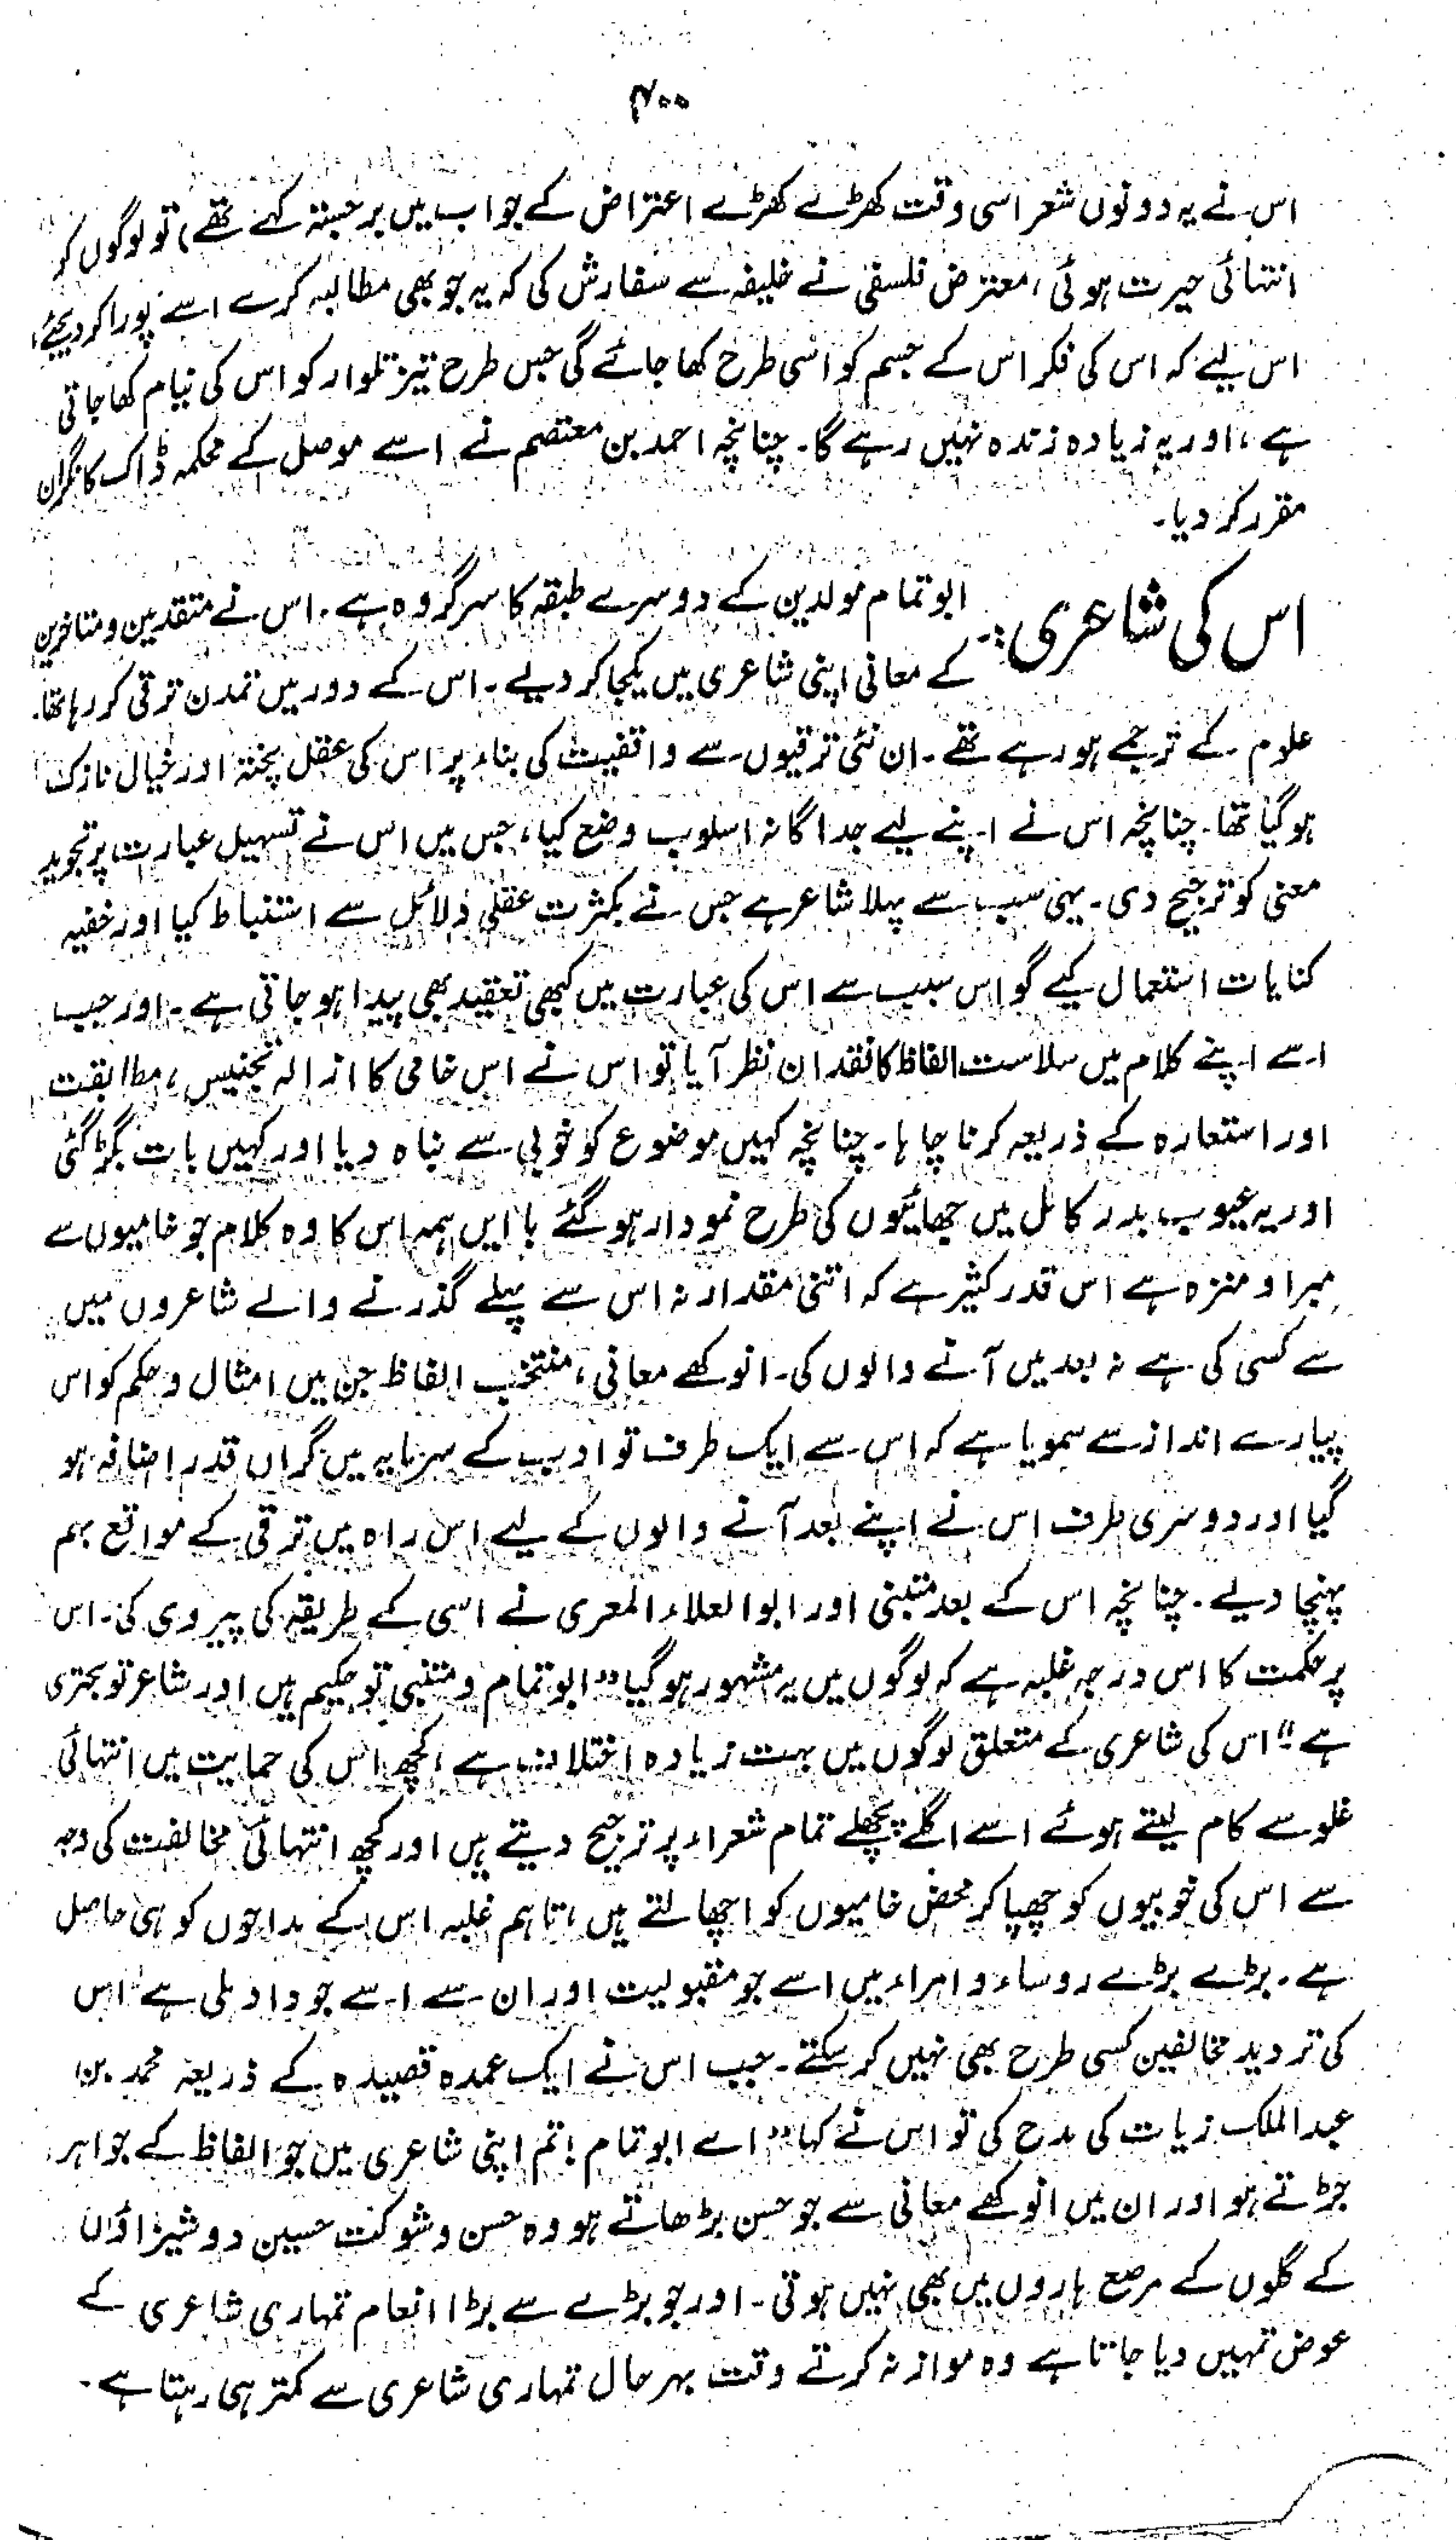 ۴۰۰
اس نے یہ دونوں شعر اسی وقت کھڑے کھڑے اعتراض کے جواب میں برجستہ کہے تھے) تو لوگوں کو
انتہائی حیرت ہوئی، معترض فلسفی نے خلیفہ سے سفارش کی کہ یہ جو بھی مطالبہ کرے اسے پورا کر دیجئے،
اس لیے کہ اس کی فکر اس کے جسم کو اسی طرح کھا جائے گی جس طرح تیز تلوار کو اس کی نیام کھا جاتی
ہے، اور یہ زیادہ زندہ نہیں رہے گا۔ چنانچہ احمد بن معتصم نے اسے موصل کے محکمہ ڈاک کا نگران
مقرر کر دیا۔
اس کی شاعری:۔ ابو تمام مولدین کے دوسرے طبقہ کا سرگروہ ہے۔ اس نے متقدمین و متاخرین
کے معانی اپنی شاعری میں یکجا کر دیے۔ اس کے دور میں تمدن ترقی کر رہا تھا۔
علوم کے ترجمے ہو رہے تھے۔ ان نئی ترقیوں سے واقفیت کی بناء پر اس کی عقل پختہ اور خیال نازک
ہو گیا تھا۔ چنانچہ اس نے اپنے لیے جداگانہ اسلوب وضع کیا، جس میں اس نے تسہیل عبارت پر تجوید
معنی کو ترجیح دی۔ یہی سب سے پہلا شاعر ہے جس نے بکثرت عقلی دلائل سے استنباط کیا اور خفیہ
کنایات استعمال کیے گو اس سبب سے اس کی عبارت میں کبھی تعقید بھی پیدا ہو جاتی ہے۔ اور جب
اسے اپنے کلام میں سلاست الفاظ کا فقدان نظر آیا تو اس نے اس خامی کا ازالہ تجنیس، مطابقت
اور استعارہ کے ذریعہ کرنا چاہا۔ چنانچہ کہیں موضوع کو خوبی سے نباہ دیا اور کہیں بات بگڑ گئی
اور یہ عیوب بدر کامل میں چھائیوں کی طرح نمودار ہو گئے باایں ہمہ اس کا وہ کلام جو خامیوں سے
مبرا و منزہ ہے اس قدر کثیر ہے کہ اتنی مقدار نہ اس سے پہلے گذرنے والے شاعروں میں
سے کسی کی ہے نہ بعد میں آنے والوں کی۔ انوکھے معانی، منتخب الفاظ جن میں امثال و حکم کو اس
پیارے انداز سے سمویا ہے کہ اس سے ایک طرف تو ادب کے سرمایہ میں گراں قدر اضافہ ہو
گیا اور دوسری طرف اس نے اپنے بعد آنے والوں کے لیے اس راہ میں ترقی کے مواقع بہم
پہنچا دیے۔ چنانچہ اس کے بعد متبنی اور ابوالعلاء المعری نے اسی کے طریقہ کی پیروی کی۔ اس
پر حکمت کا اس درجہ غلبہ ہے کہ لوگوں میں یہ مشہور ہو گیا "ابو تمام و متنبی تو حکیم ہیں اور شاعر تو بحتری
ہے" اس کی شاعری کے متعلق لوگوں میں بہت زیادہ اختلاف ہے، کچھ اس کی حمایت میں انتہائی
غلو سے کام لیتے ہوئے اسے اگلے پچھلے تمام شعراء پر ترجیح دیتے ہیں اور کچھ انتہائی مخالفت کی وجہ
سے اس کی خوبیوں کو چھپا کر محض خامیوں کو اچھالتے ہیں، تاہم غلبہ اس کے مداحوں کو ہی حاصل
ہے۔ بڑے بڑے روساء و امراء میں اسے جو مقبولیت اور ان سے اسے جو داد ملی ہے اس
کی تردید مخالفین کسی طرح بھی نہیں کر سکتے۔ جب اس نے ایک عمدہ قصیدہ کے ذریعہ محمد بن
عبدالملک زیات کی مدح کی تو اس نے کہا "اے ابو تمام! تم اپنی شاعری میں جو الفاظ کے جواہر
جڑتے ہو اور ان میں انوکھے معانی سے جو حسن بڑھاتے ہو وہ حسن و شوکت حسین دوشیزاؤں
کے گلوں کے مرصع ہاروں میں بھی نہیں ہوتی۔ اور جو بڑے سے بڑا انعام تمہاری شاعری کے
عوض تمہیں دیا جاتا ہے وہ موازنہ کرتے وقت بہر حال تمہاری شاعری سے کمتر ہی رہتا ہے۔